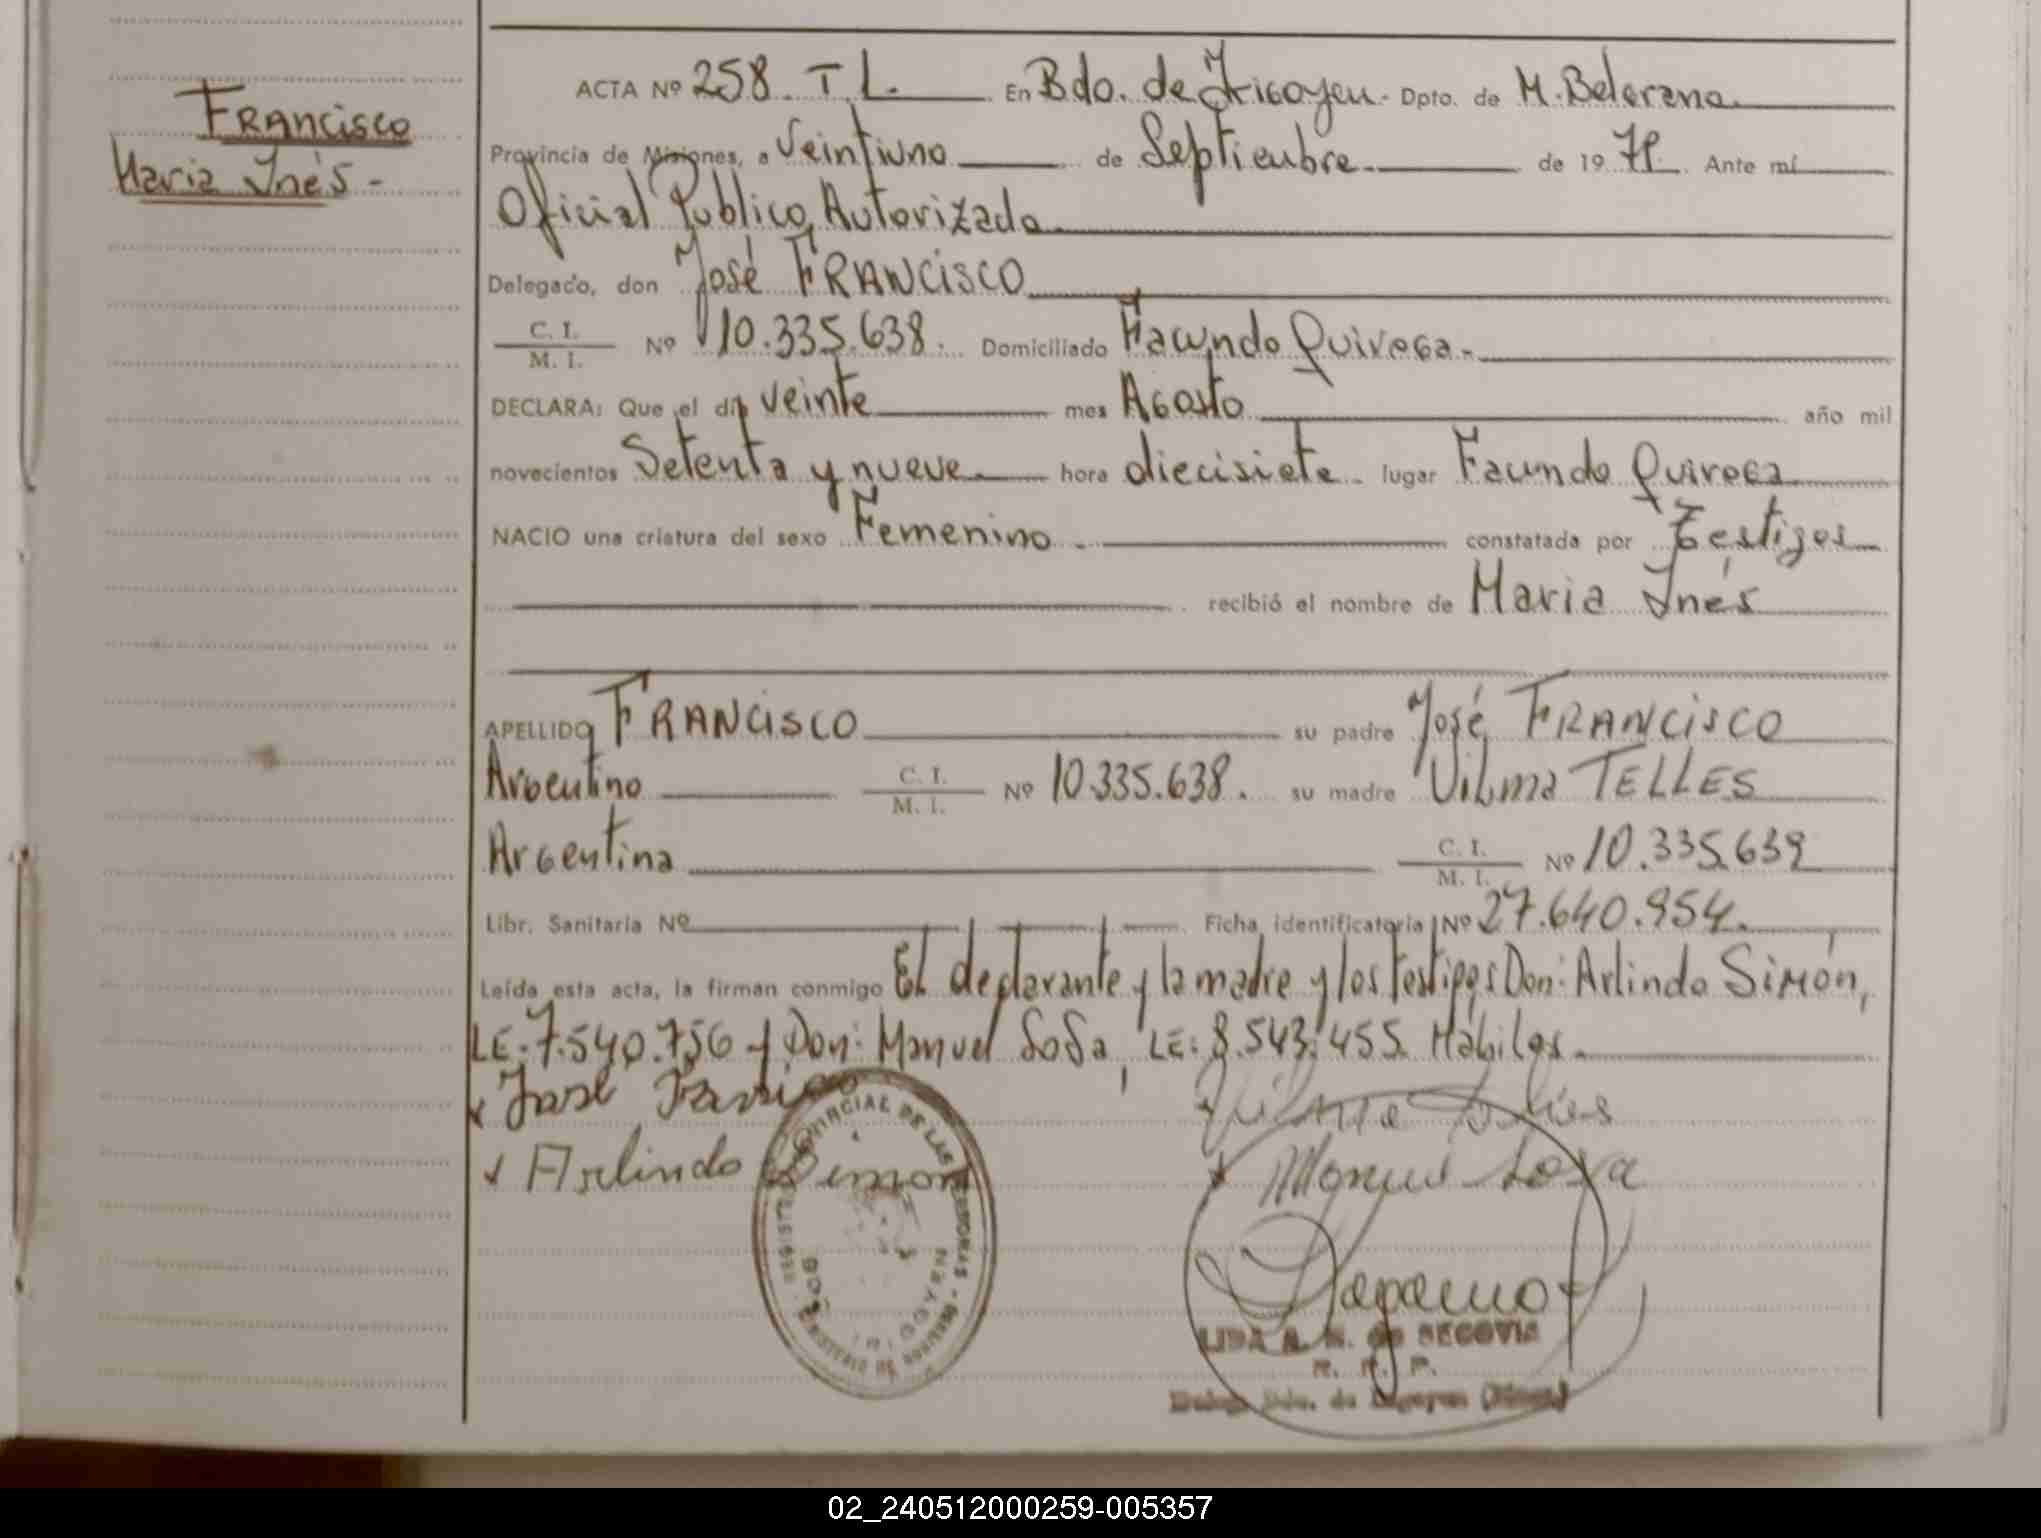 FRANCISCO
Maria Inés -
ACTA Nº 258. T. L. En Bdo. de Irigoyen - Dpto. de M. Belgrano.
Provincia de Misiones, a Veintiuno de Septiembre de 19 79 Ante mí
Oficial Publico Autorizado
Delegado, don José FRANCISCO
C. I.
M. I. Nº 10.335.638. Domiciliado Facundo Quiroga.
DECLARA: Que el día veinte mes Agosto año mil
novecientos Setenta y nueve hora diecisiete lugar Facundo Quiroga
NACIO una criatura del sexo Femenino constatada por Testigos
recibió el nombre de Maria Inés
APELLIDO FRANCISCO su padre José FRANCISCO
Argentino C. I. M. I. Nº 10.335.638. su madre Vilma TELLES
Argentina C. I. M. I. Nº 10.335.639
Libr. Sanitaria Nº Ficha identificatoria Nº 27.640.954.
Leída esta acta, la firman conmigo El declarante y la madre y los Testigos Don: Arlindo Simón,
LE. 7.540.756 y Don: Manuel Sosa, LE: 8.543.455 Hábiles.
José Vilma
Arlindo Simon Manuel Sosa
REGISTRO PROVINCIAL DE LAS PERSONAS - MISIONES
LIDA A. N. de SEGOVIA
R. P.
Bdo. de Irigoyen (Mnes.)
02_240512000259-005357